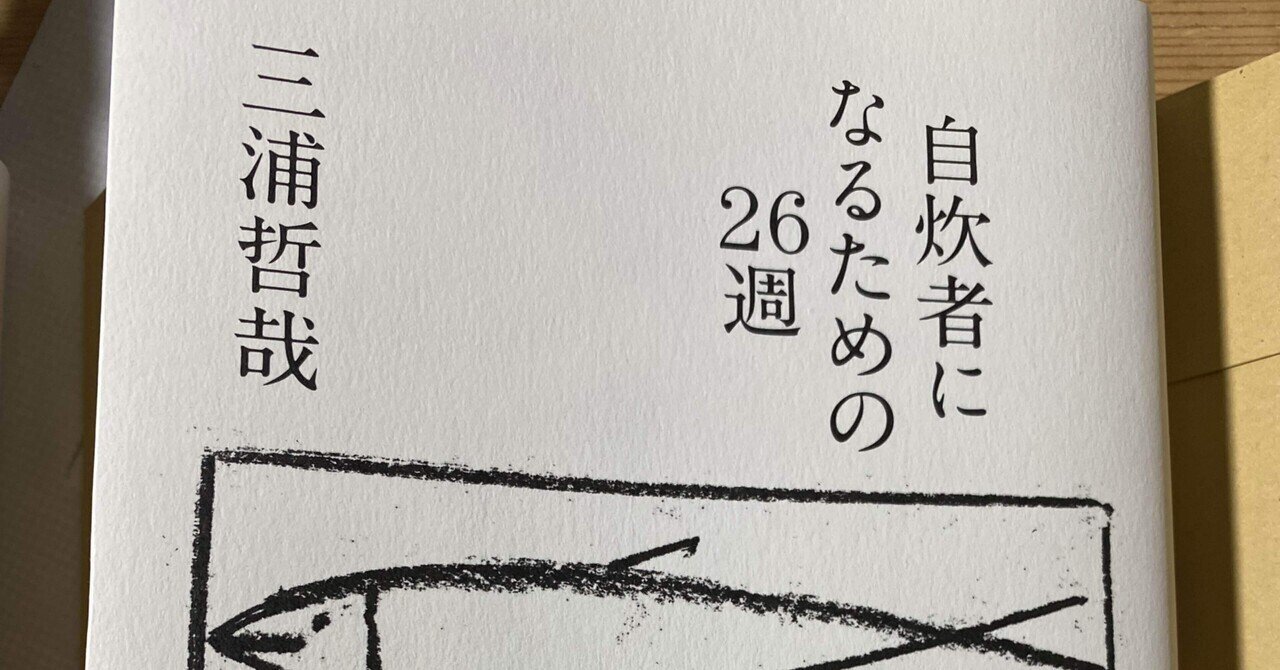 自炊者に
なるための
26週
三浦哲哉